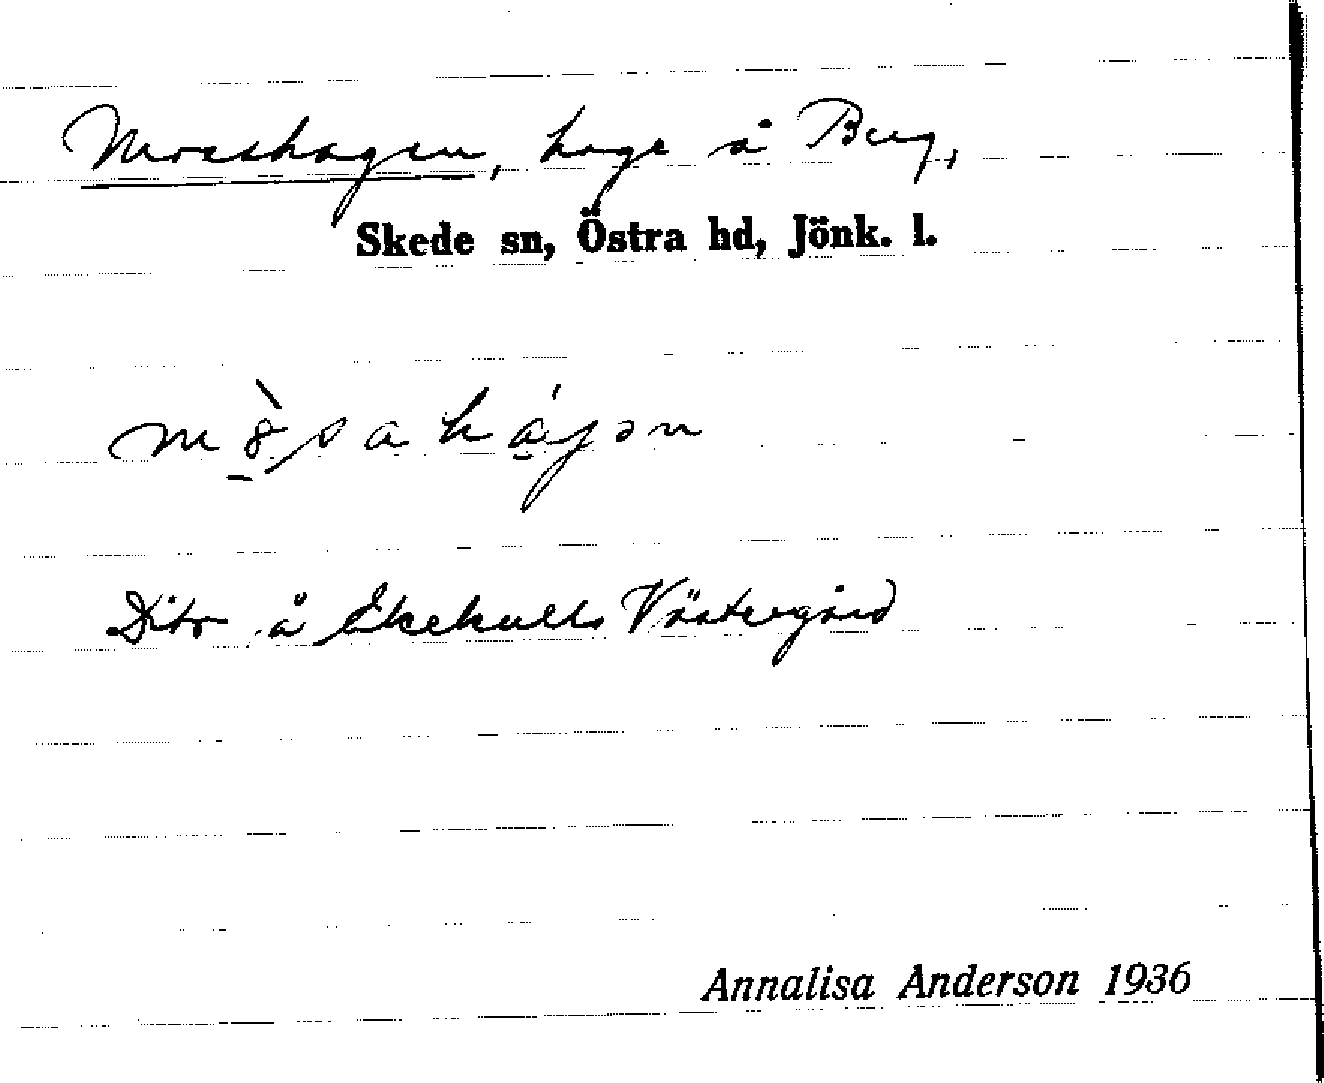 Moseshagen, hage å Berg,
Skede sn, Östra hd, Jönk. l.
Dito å Ekekulls Västergård
Annalisa Anderson 1936